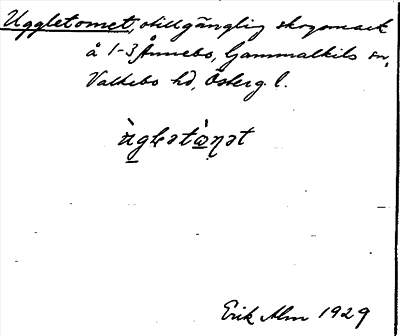 Uggletomet, otillgänglig skogsmark
å 1-3 Ånnebo, Gammalkils sn,
Valkebo hd, Österg. l.
ùgɫətòṃət
Erik Alm 1929